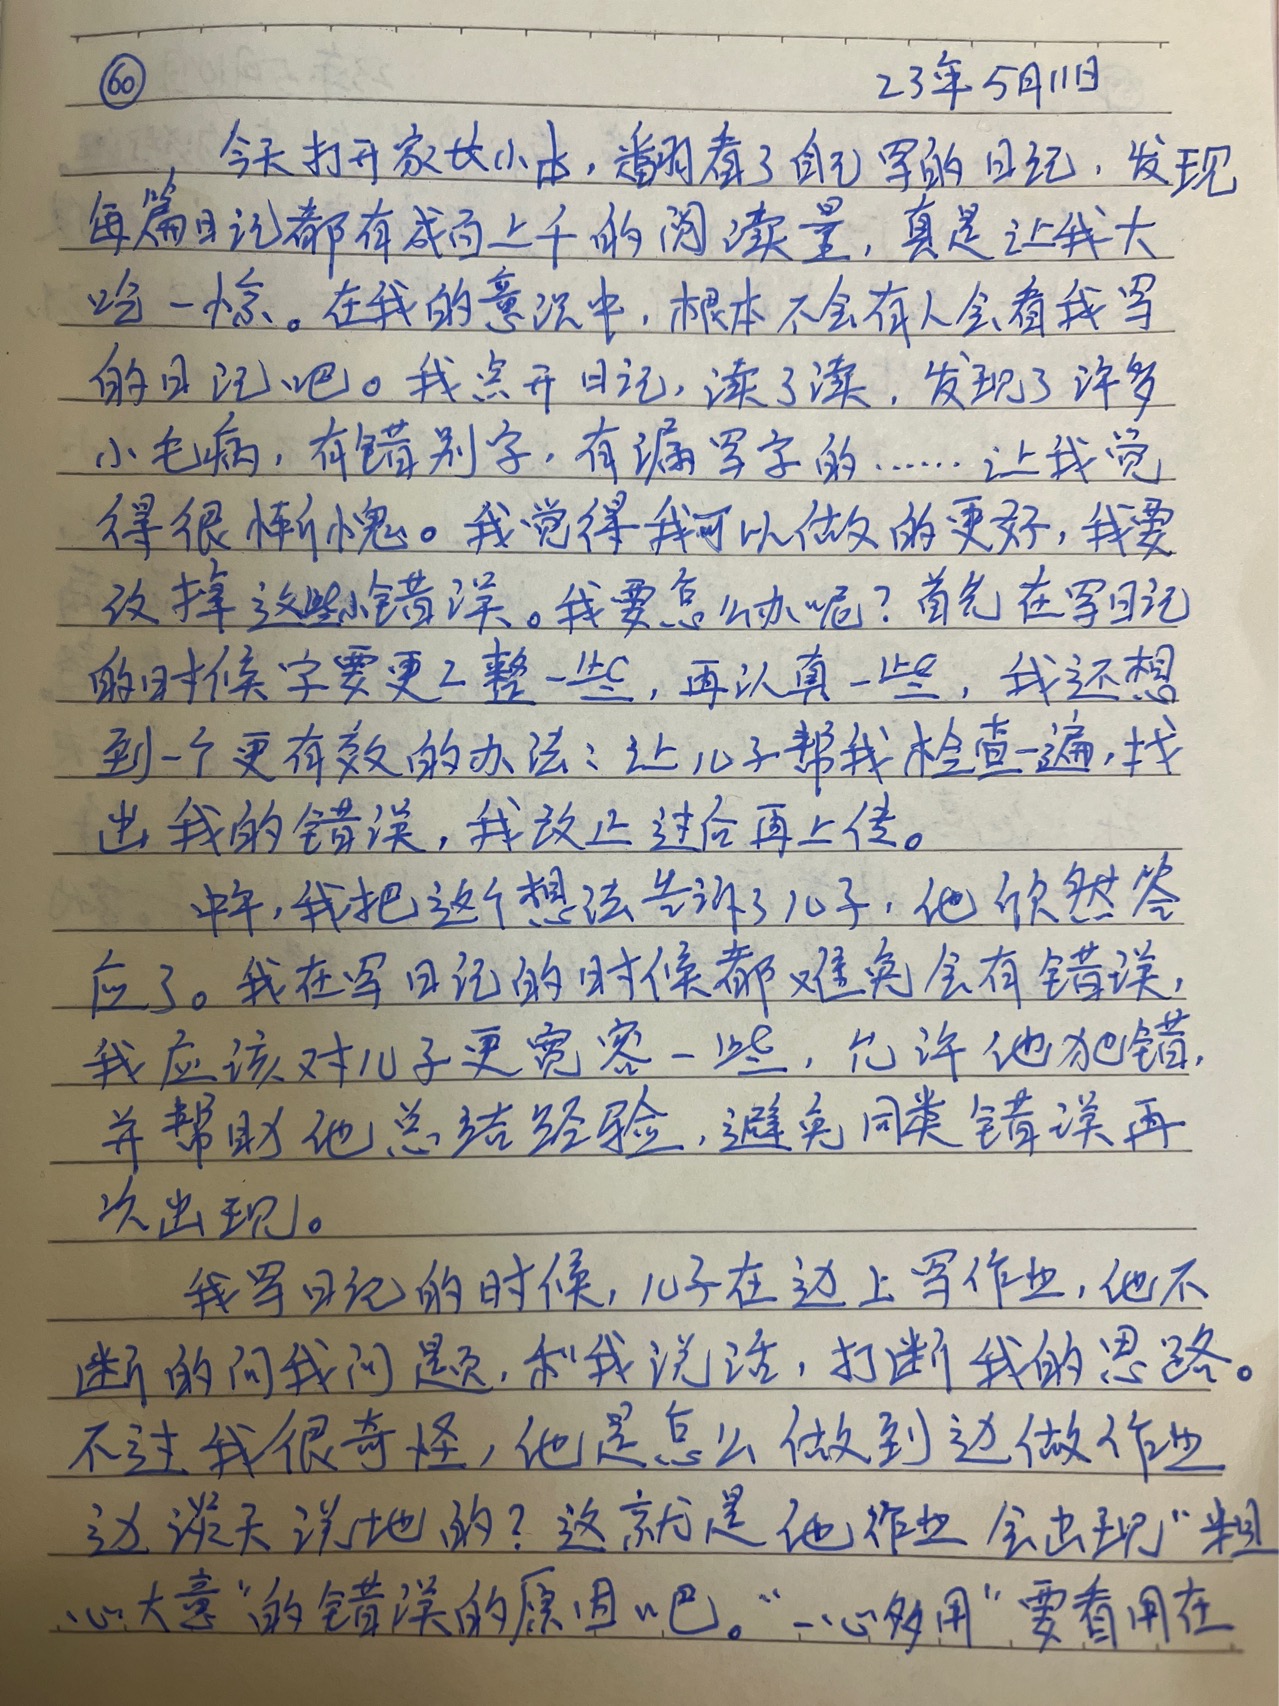 60 23年5月11日
今天打开家女小冰,翻看了自己写的日记,发现
每篇日记都有成百上千的阅读量,真是让我大
吃一惊。在我的意识中,根本不会有人会看我写
的日记吧。我点开日记,读了读,发现了许多
小毛病,有错别字,有漏写字的……让我觉
得很惭愧。我觉得我可以做的更好,我要
改掉这些小错误。我要怎么办呢?首先在写日记
的时候字要更工整一些,再认真一些,我还想
到一个更有效的办法:让儿子帮我检查一遍,找
出我的错误,我改正过后再上传。
中午,我把这个想法告诉了儿子,他欣然答
应了。我在写日记的时候都难免会有错误,
我应该对儿子更宽容一些,允许他犯错,
并帮助他总结经验,避免同类错误再
次出现。
我写日记的时候,儿子在边上写作业,他不
断的问我问题,和我说话,打断我的思路。
不过我很奇怪,他是怎么做到边做作业
边谈天说地的?这就是他作业会出现“粗
心大意”的错误的原因吧。“一心多用”要看用在